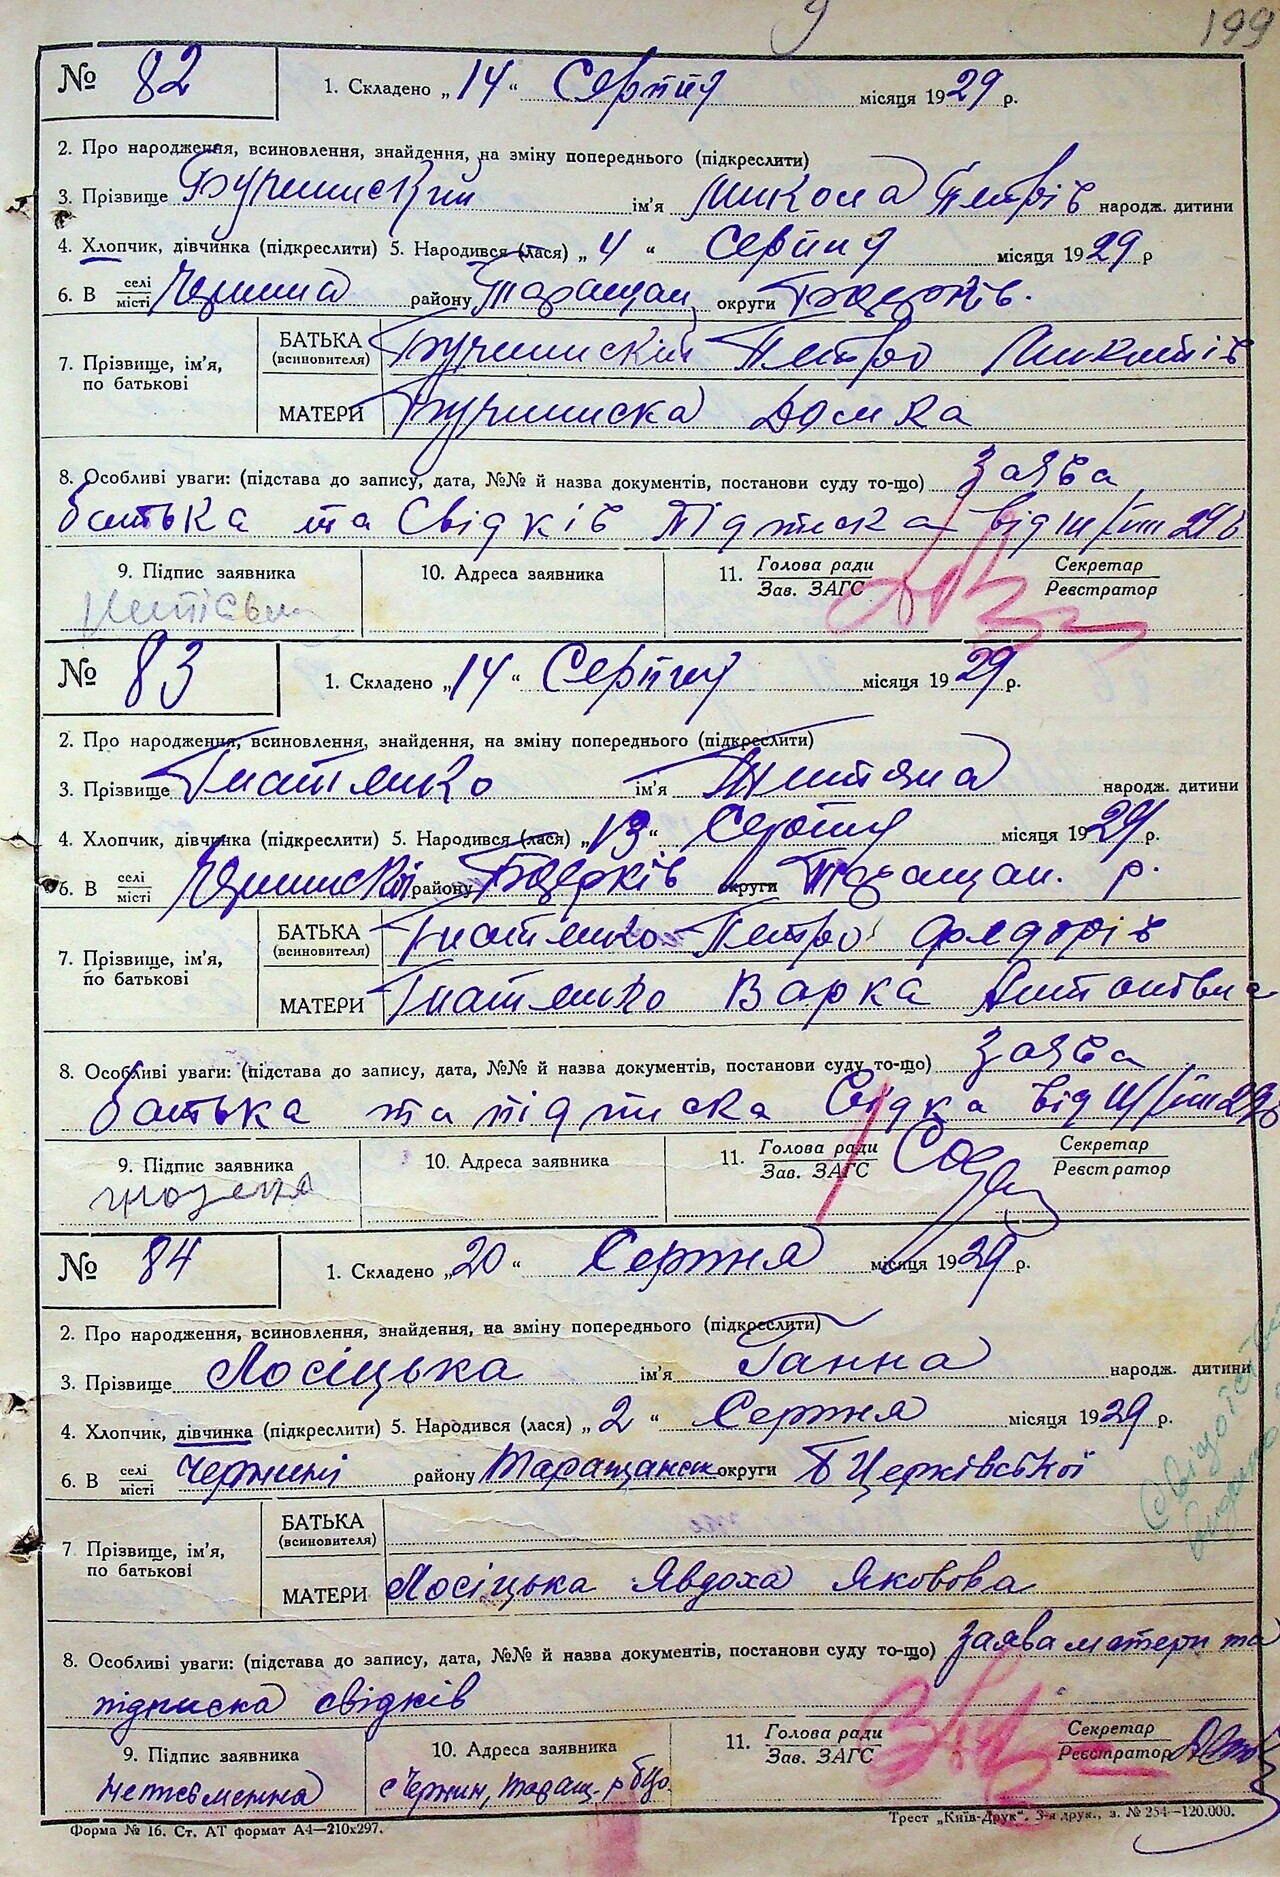 199
№ 82 1. Складено „14“ Серпня місяця 1929 р.
2. Про народження, всиновлення, знайдення, на зміну попереднього (підкреслити)
3. Прізвище ім'я Микола Петрів народж. дитини
4. Хлопчик, дівчинка (підкреслити) 5. Народився (лася) „4“ серпня місяця 1929 р
6. В селі/місті району Таращан, округи Бацерків.
7. Прізвище, ім'я, по батькові
БАТЬКА (всиновителя) Петро Микитів
МАТЕРИ Домка
8. Особливі уваги: (підстава до запису, дата, №№ й назва документів, постанови суду то-що) заява
батька та Свідків Підписка від 29
9. Підпис заявника 10. Адреса заявника 11. Голова ради/Зав. ЗАГС Секретар/Реєстратор
№ 83 1. Складено „14“ Серпня місяця 1929 р.
2. Про народження, всиновлення, знайдення, на зміну попереднього (підкреслити)
3. Прізвище Гнатенко ім'я народж. дитини
4. Хлопчик, дівчинка (підкреслити) 5. Народився (лася) „13“ Серпня місяця 1929 р.
6. В селі/місті району Бацерків округи Таращан. р.
7. Прізвище, ім'я, по батькові
БАТЬКА (всиновителя) Гнатенко Петро Федорів
МАТЕРИ Гнатенко Варка Антонівна
8. Особливі уваги: (підстава до запису, дата, №№ й назва документів, постанови суду то-що) заява
батька та підписка Свідка від
9. Підпис заявника 10. Адреса заявника 11. Голова ради/Зав. ЗАГС Секретар/Реєстратор
№ 84 1. Складено „20“ Серпня місяця 1929 р.
2. Про народження, всиновлення, знайдення, на зміну попереднього (підкреслити)
3. Прізвище Лосіцька ім'я Ганна народж. дитини
4. Хлопчик, дівчинка (підкреслити) 5. Народився (лася) „2“ Серпня місяця 1929 р.
6. В селі/місті Чернині району Таращанськ округи Б Церківської
7 Прізвище, ім'я, по батькові
БАТЬКА (всиновителя)
МАТЕРИ Лосіцька Явдоха Яковова
8. Особливі уваги: (підстава до запису, дата, №№ й назва документів, постанови суду то-що) заява матери та
підписка свідків
9. Підпис заявника 10. Адреса заявника 11. Голова ради/Зав. ЗАГС Секретар/Реєстратор
неписьменна с Чернин, Таращ. р БЦо.
Форма № 16. Ст. АТ формат А4—210х297. Трест „Київ-Друк“. 3-я друк., з. № 254—120.000.